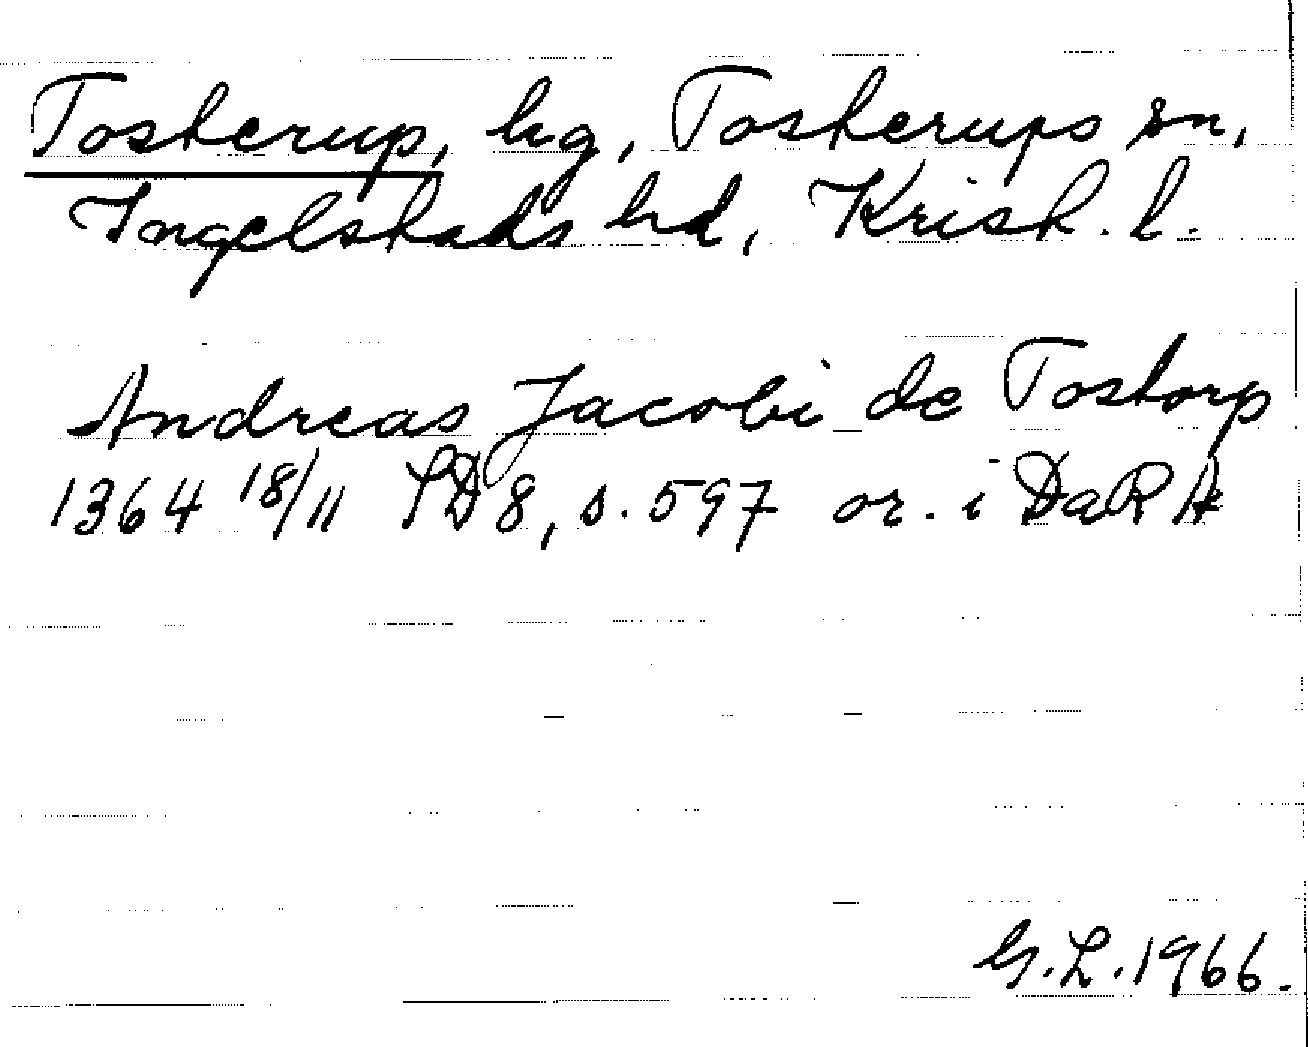 Tosterup, hg, Tosterups sn,
Ingelstads hd, Krist. l.
Andreas Jacobi de Tostorp
1364 18/11 SD 8, s. 597 or. i DaRA
G.L. 1966.